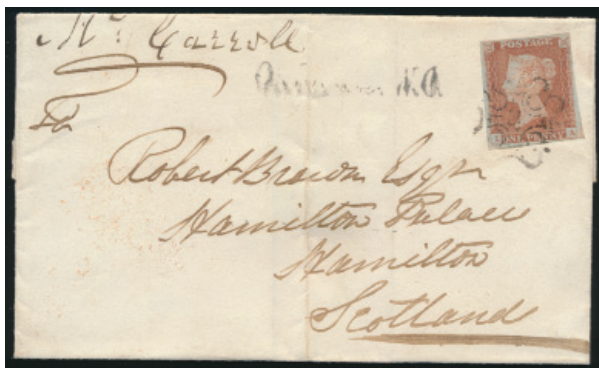 Mr Carroll
POSTAGE
To
Robert Brown Esqr
Hamilton Palace
Hamilton
Scotland